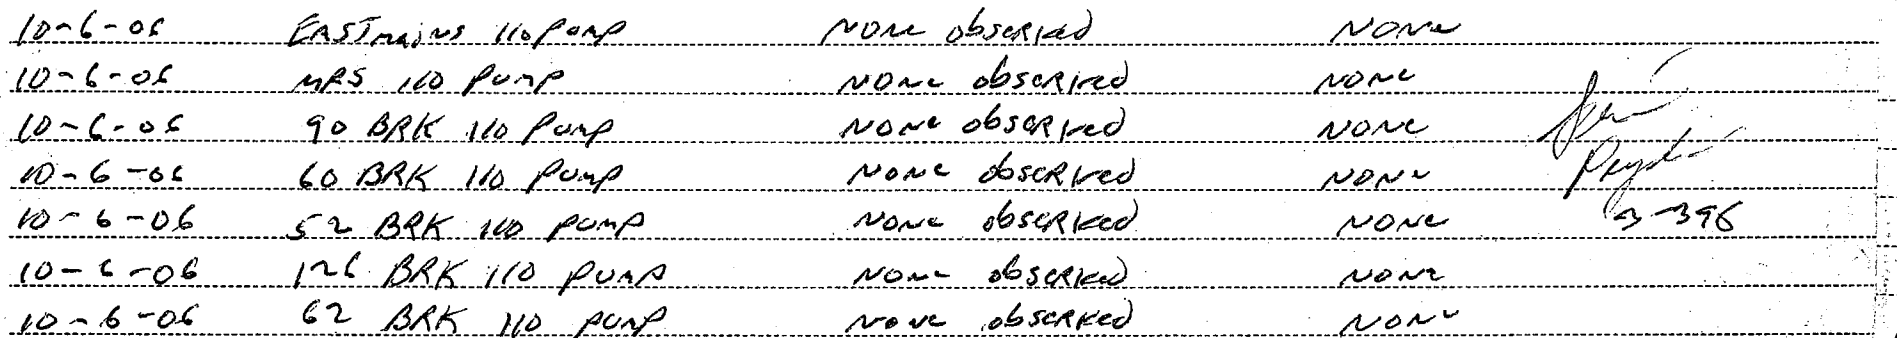 10-6-06 EASTmains 110 pump NONE observed NONE
10-6-06 MRS 110 pump NONE observed NONE
10-6-06 90 BRK 110 pump NONE observed NONE
10-6-06 60 BRK 110 pump NONE observed NONE
10-6-06 52 BRK 110 pump NONE observed NONE 3-396
10-6-06 126 BRK 110 pump NONE observed NONE
10-6-06 62 BRK 110 pump NONE observed NONE